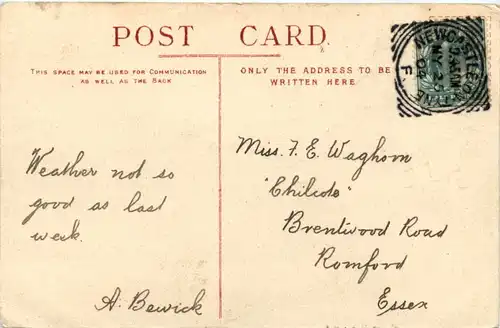 POST CARD.
THIS SPACE MAY BE USED FOR COMMUNICATION
AS WELL AS THE BACK
ONLY THE ADDRESS TO BE
WRITTEN HERE.
NEWCASTLE-ON-TYNE
MY 2
04
F
Weather not so
good as last
week.
A. Bewick
Miss. F. E. Waghorn
"Chilcote"
Brentwood Road
Romford
Essex